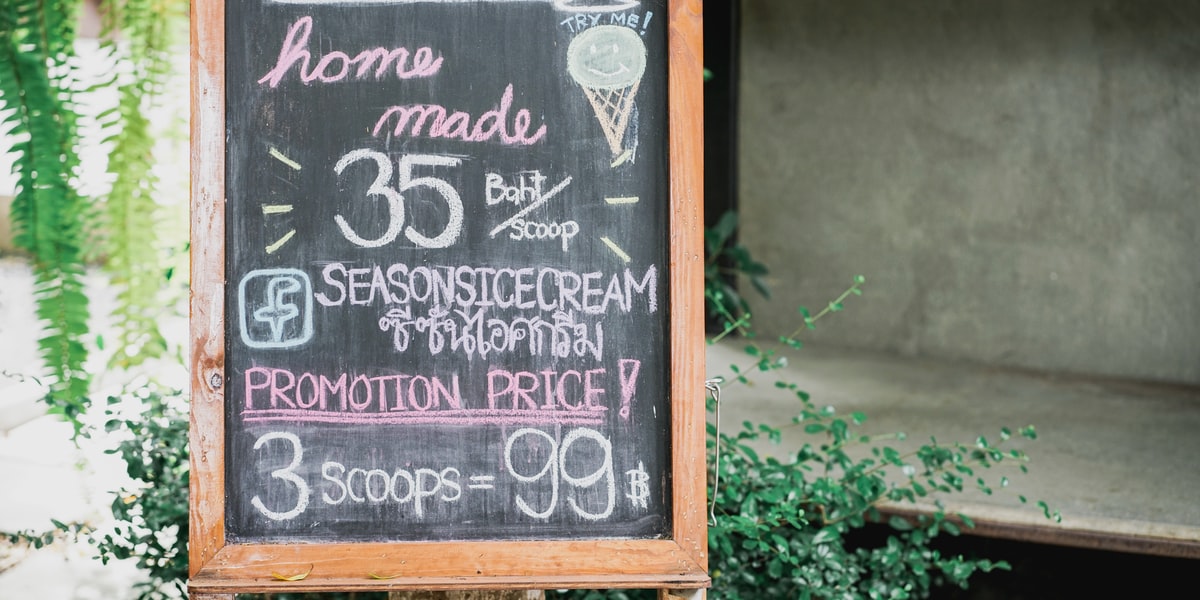 TRY ME!
home
made
35 Baht/scoop
f SEASONSICECREAM
ซีซันไอศกรีม
PROMOTION PRICE!
3 SCOOPS = 99 ฿